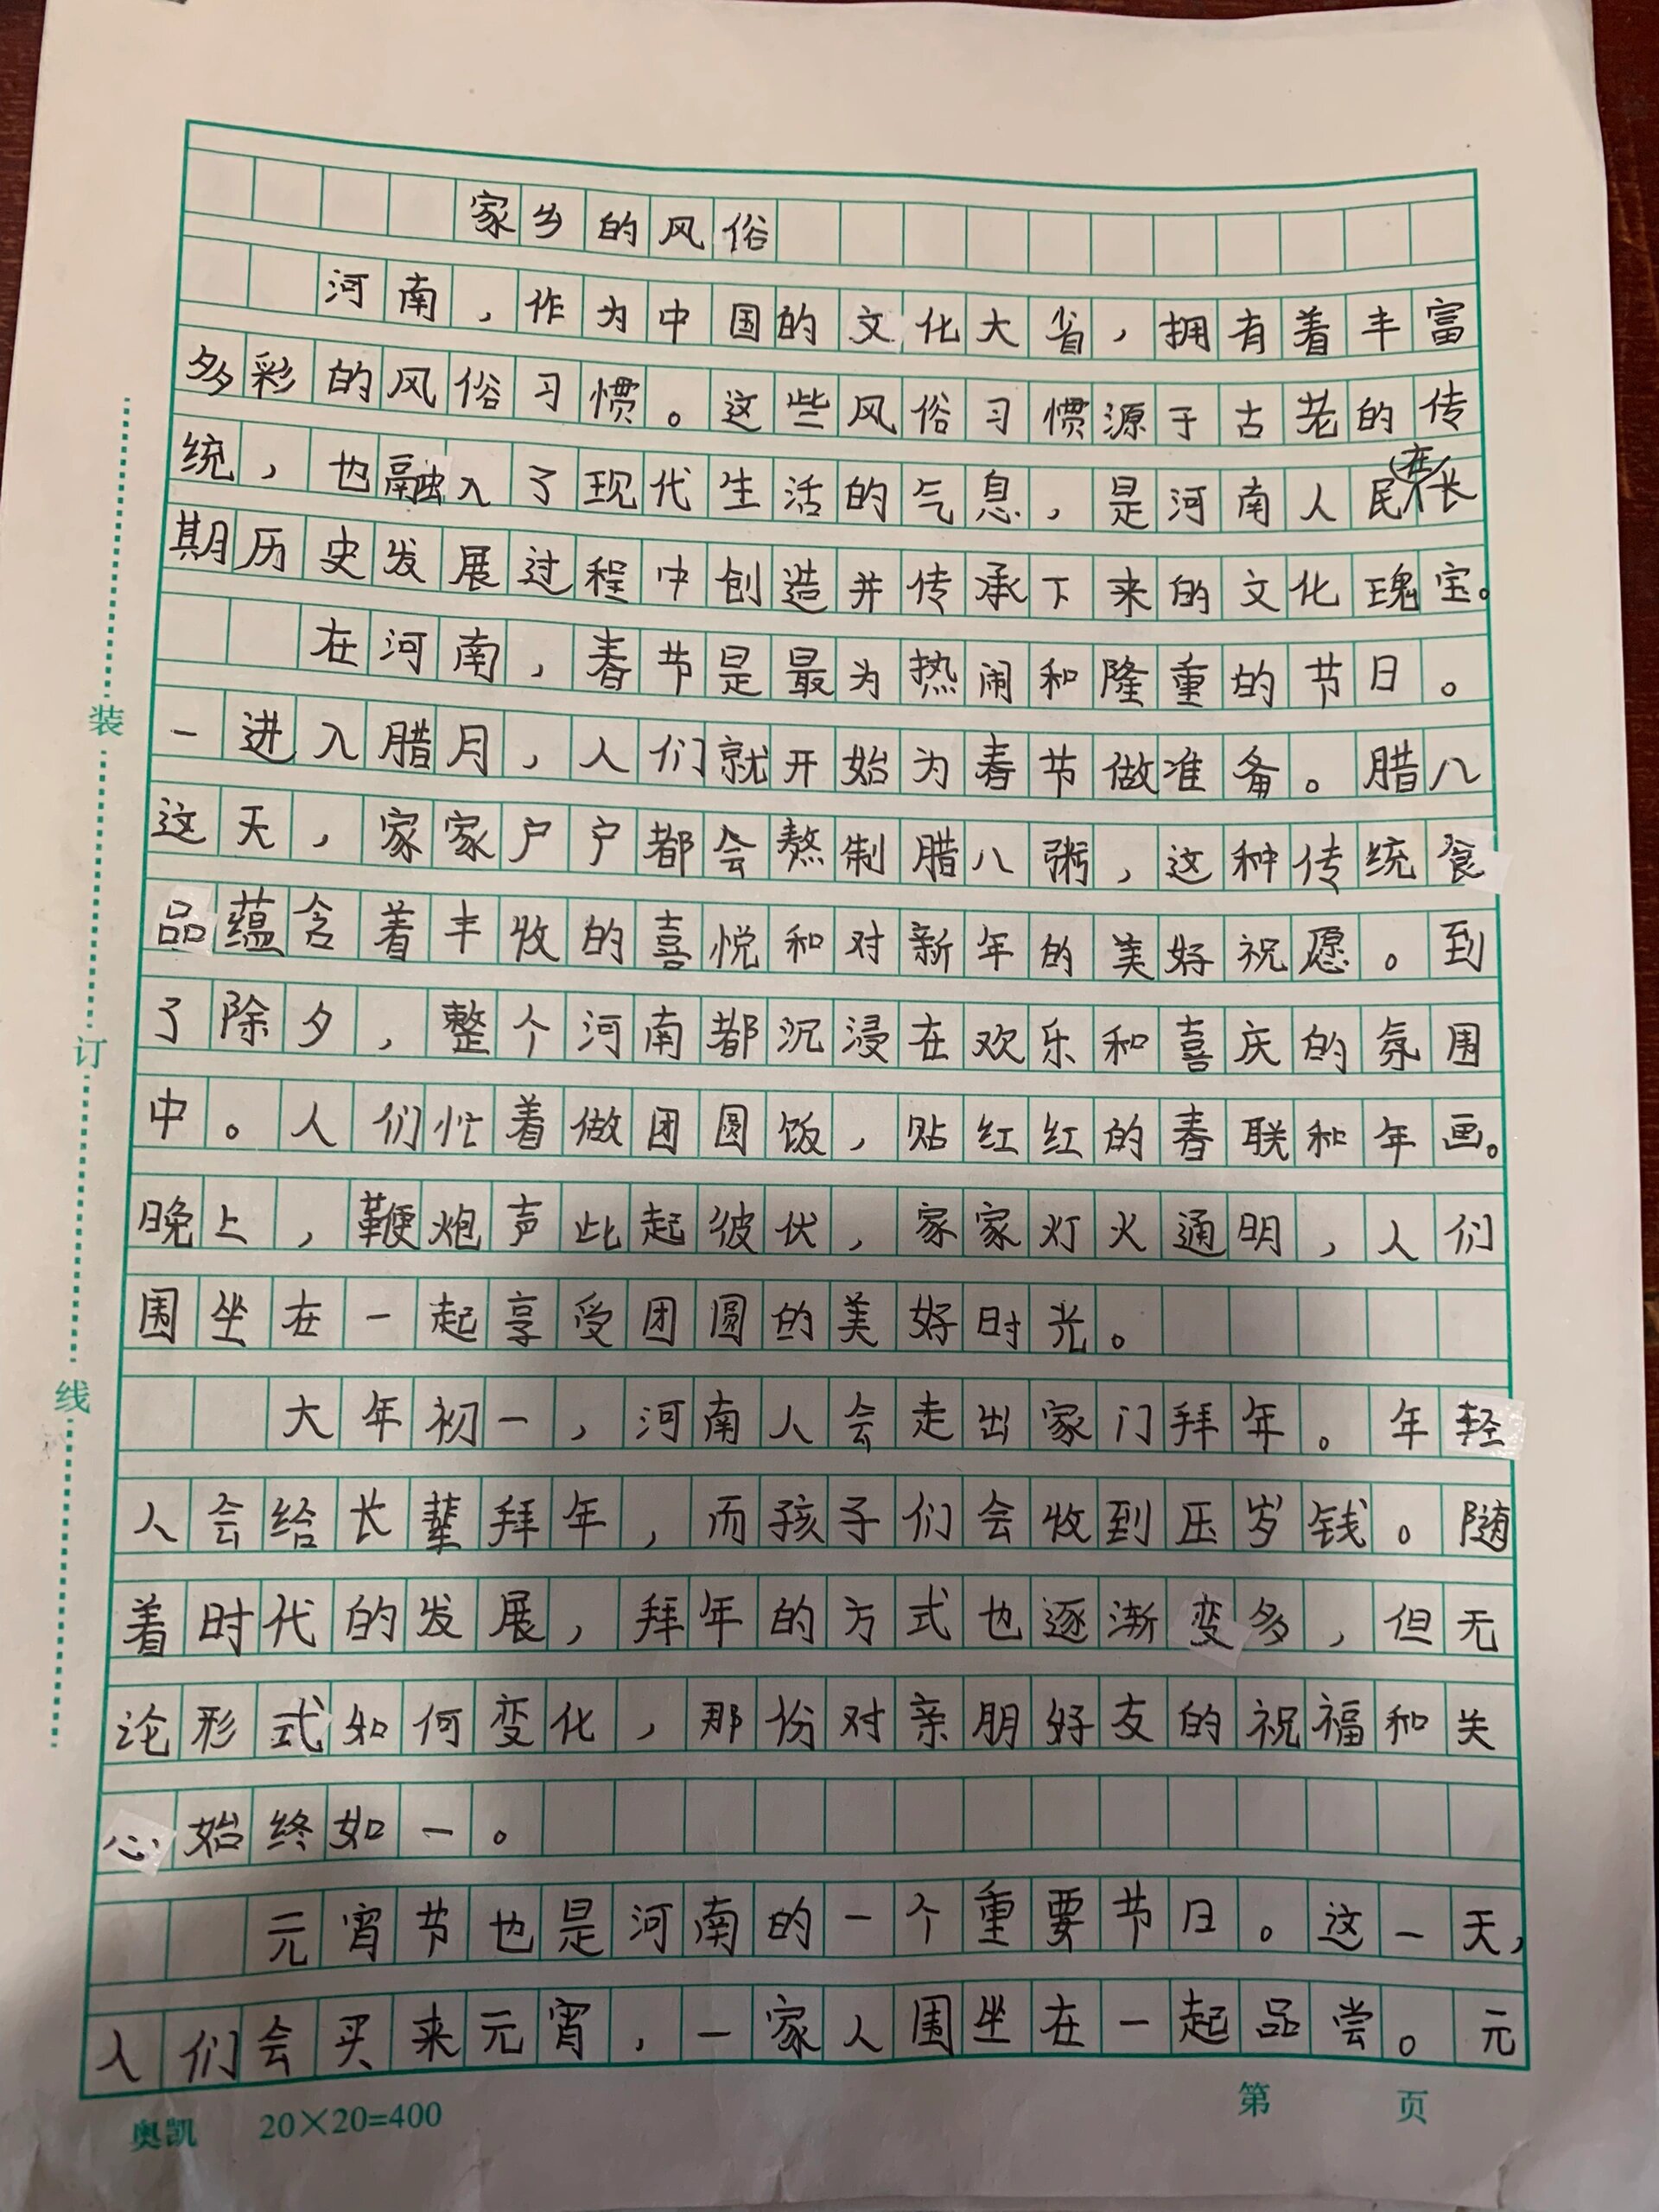 家乡的风俗
河南，作为中国的文化大省，拥有着丰富
多彩的风俗习惯。这些风俗习惯源于古老的传
统，也融入了现代生活的气息，是河南人民在长
期历史发展过程中创造并传承下来的文化瑰宝。
在河南，春节是最为热闹和隆重的节日。
一进入腊月，人们就开始为春节做准备。腊八
这天，家家户户都会熬制腊八粥，这种传统食
品蕴含着丰收的喜悦和对新年的美好祝愿。到
了除夕，整个河南都沉浸在欢乐和喜庆的氛围
中。人们忙着做团圆饭，贴红红的春联和年画。
晚上，鞭炮声此起彼伏，家家灯火通明，人们
围坐在一起享受团圆的美好时光。
大年初一，河南人会走出家门拜年。年轻
人会给长辈拜年，而孩子们会收到压岁钱。随
着时代的发展，拜年的方式也逐渐变多，但无
论形式如何变化，那份对亲朋好友的祝福和关
心始终如一。
元宵节也是河南的一个重要节日。这一天，
人们会买来元宵，一家人围坐在一起品尝。元
装
订
线
奥凯 20×20=400
第 页